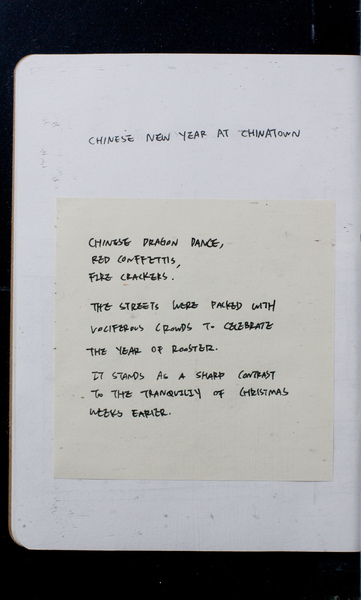 CHINESE NEW YEAR AT CHINATOWN
CHINESE DRAGON DANCE,
RED CONFFETTIS,
FIRE CRACKERS.
THE STREETS WERE PACKED WITH
VOCIFEROUS CROWDS TO CELEBRATE
THE YEAR OF ROOSTER.
IT STANDS AS A SHARP CONTRAST
TO THE TRANQUILIY OF CHRISTMAS
WEEKS EARIER.